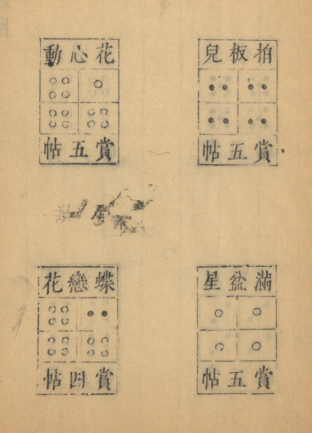 拍板兒
賞五帖
花心動
賞五帖
滿盆星
賞五帖
蝶戀花
賞四帖